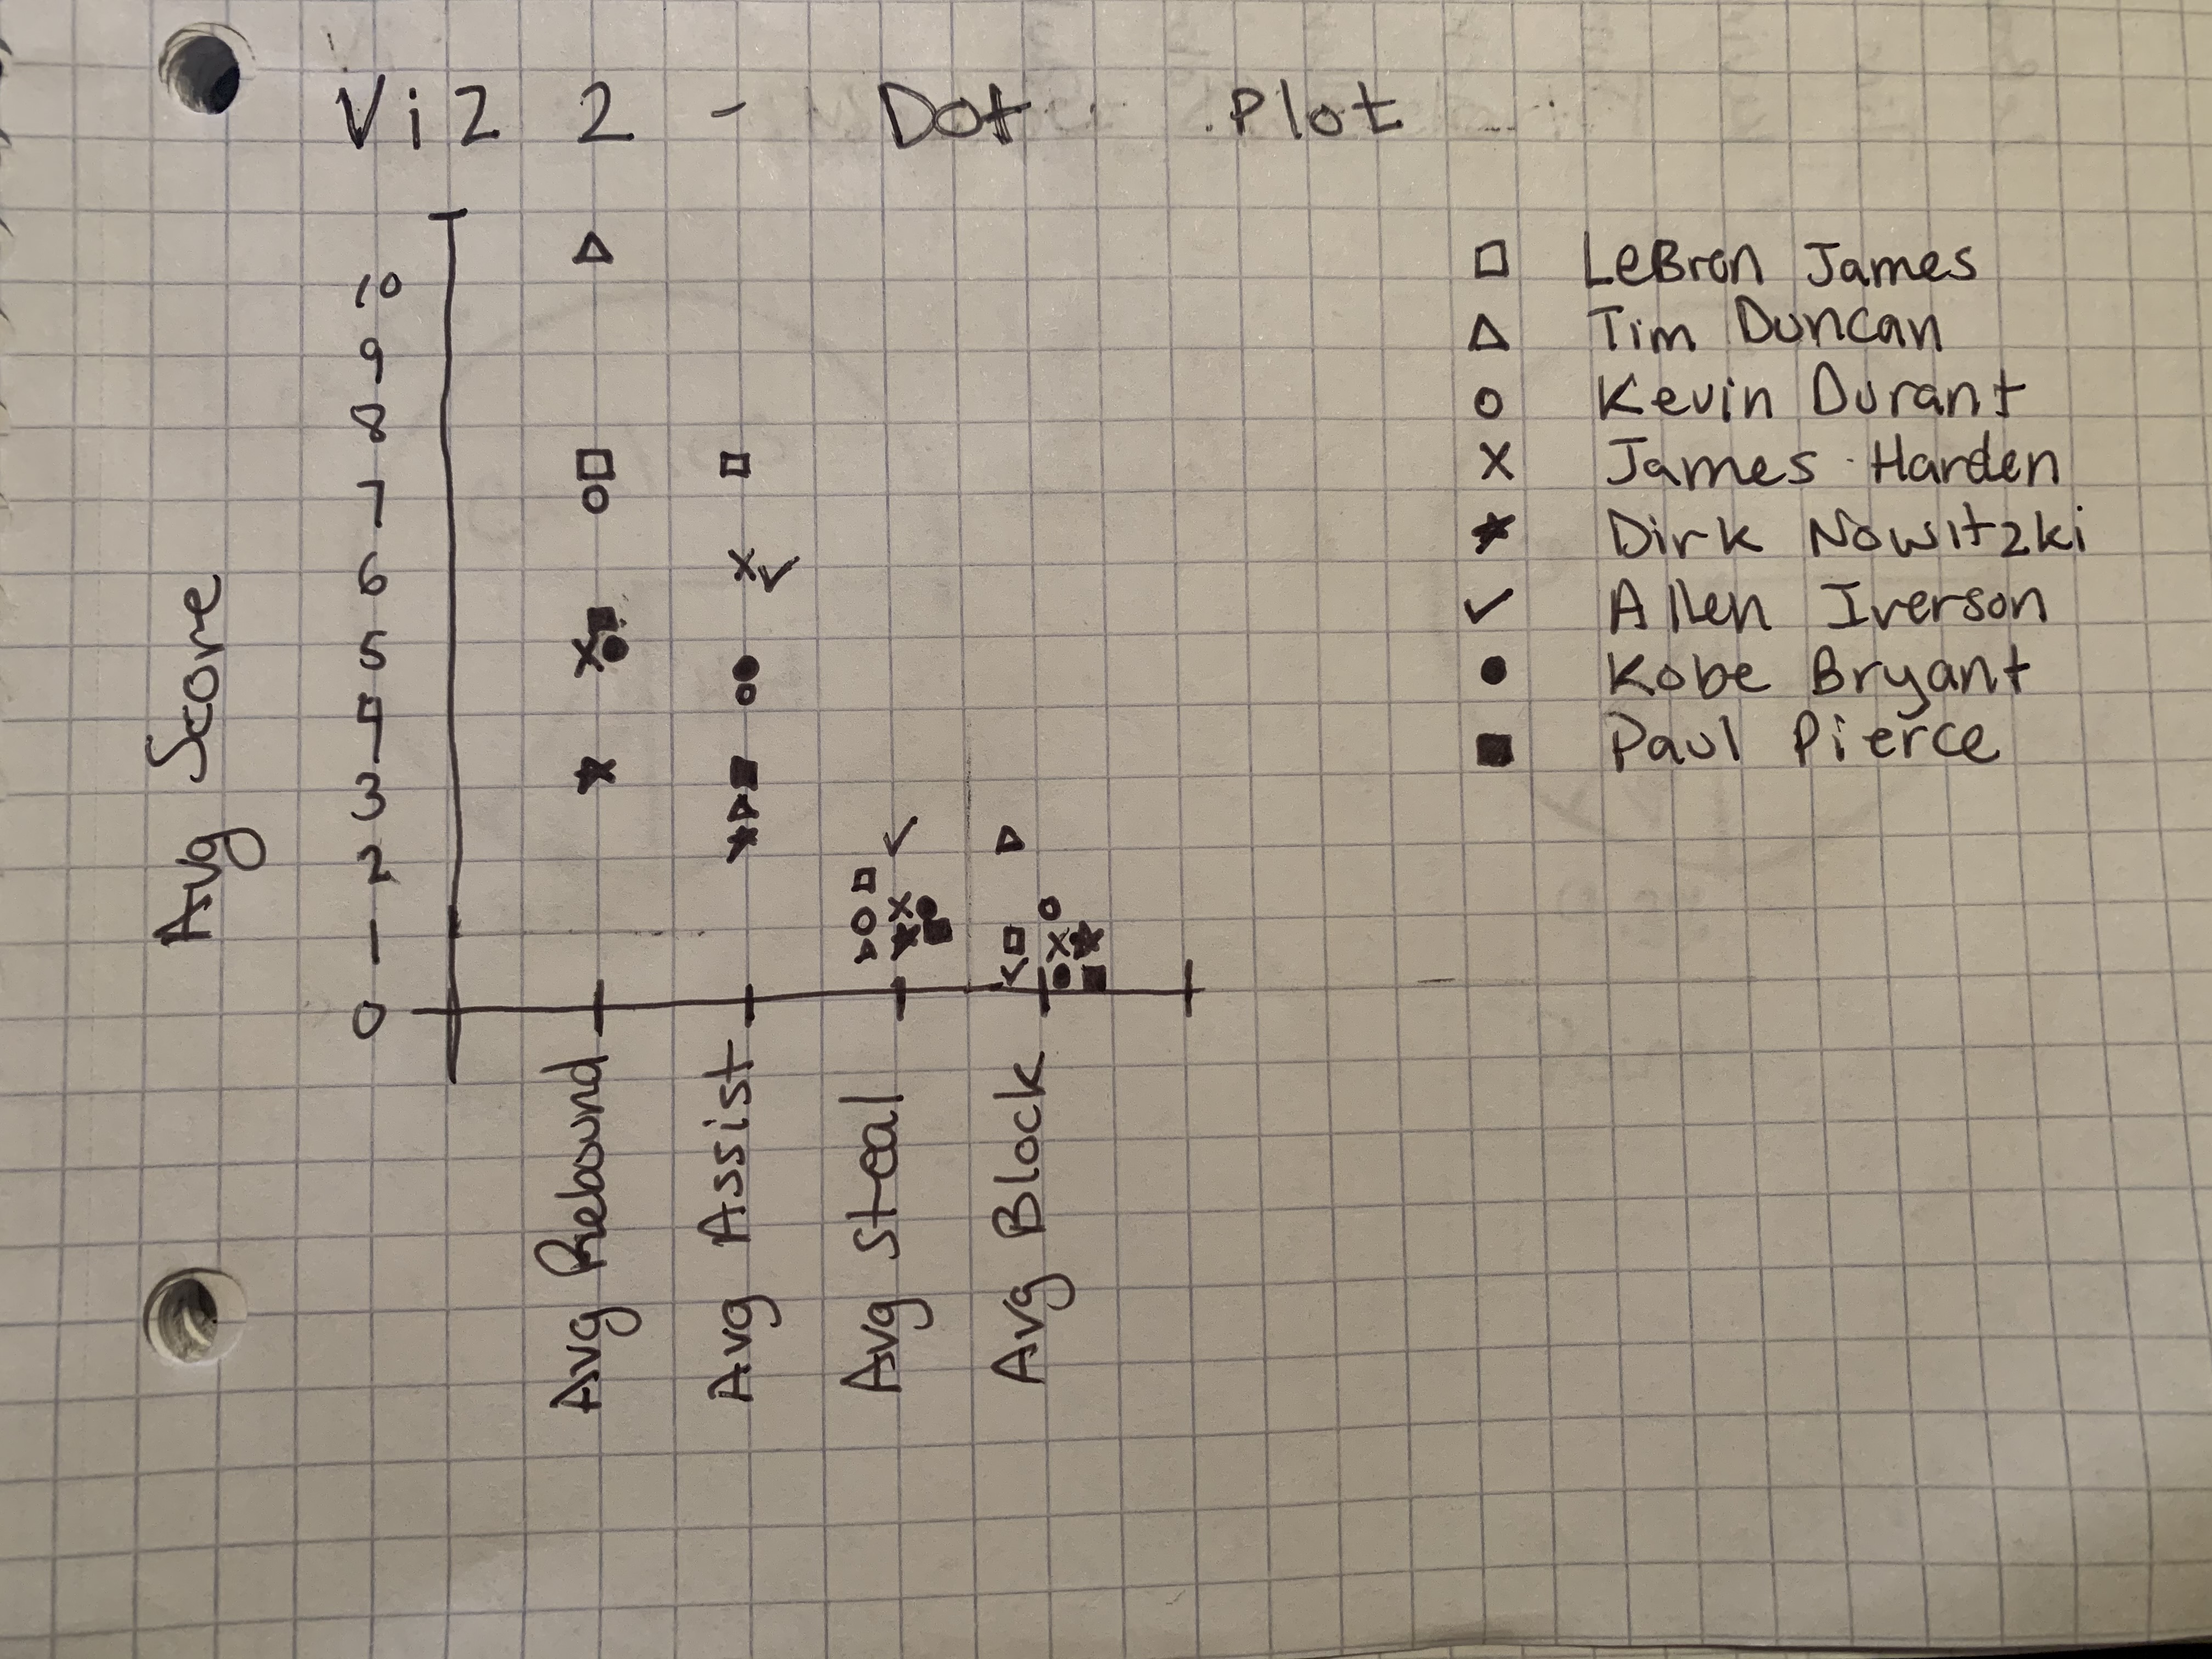 Viz 2 - Dot Plot
Avg Score
10
9
8
7
6
5
4
3
2
1
0
Avg Rebound
Avg Assist
Avg Steal
Avg Block
LeBron James
Tim Duncan
Kevin Durant
James Harden
Dirk Nowitzki
Allen Iverson
Kobe Bryant
Paul Pierce